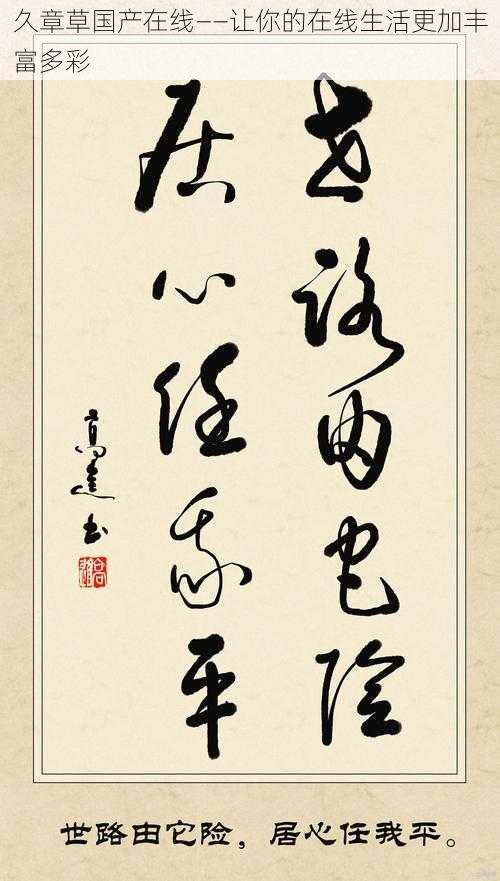 久章草国产在线——让你的在线生活更加丰
富多彩
世路由它险
居心任我平
高建书
世路由它险，居心任我平。